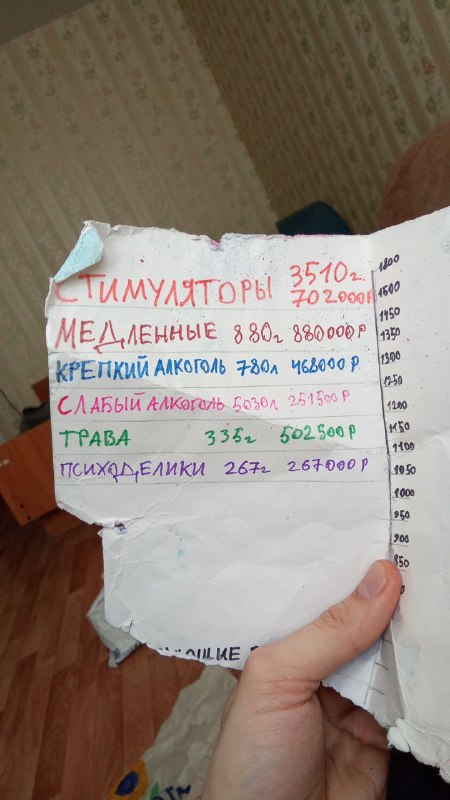 СТИМУЛЯТОРЫ 3510г
702000Р
МЕДЛЕННЫЕ 880г 880000Р
КРЕПКИЙ АЛКОГОЛЬ 780л 468000Р
СЛАБЫЙ АЛКОГОЛЬ 5030л 251500Р
ТРАВА 335г 502500Р
ПСИХОДЕЛИКИ 267г 267000Р
1800
1500
1450
1350
1300
1250
1200
1150
1100
1050
1000
950
900
850